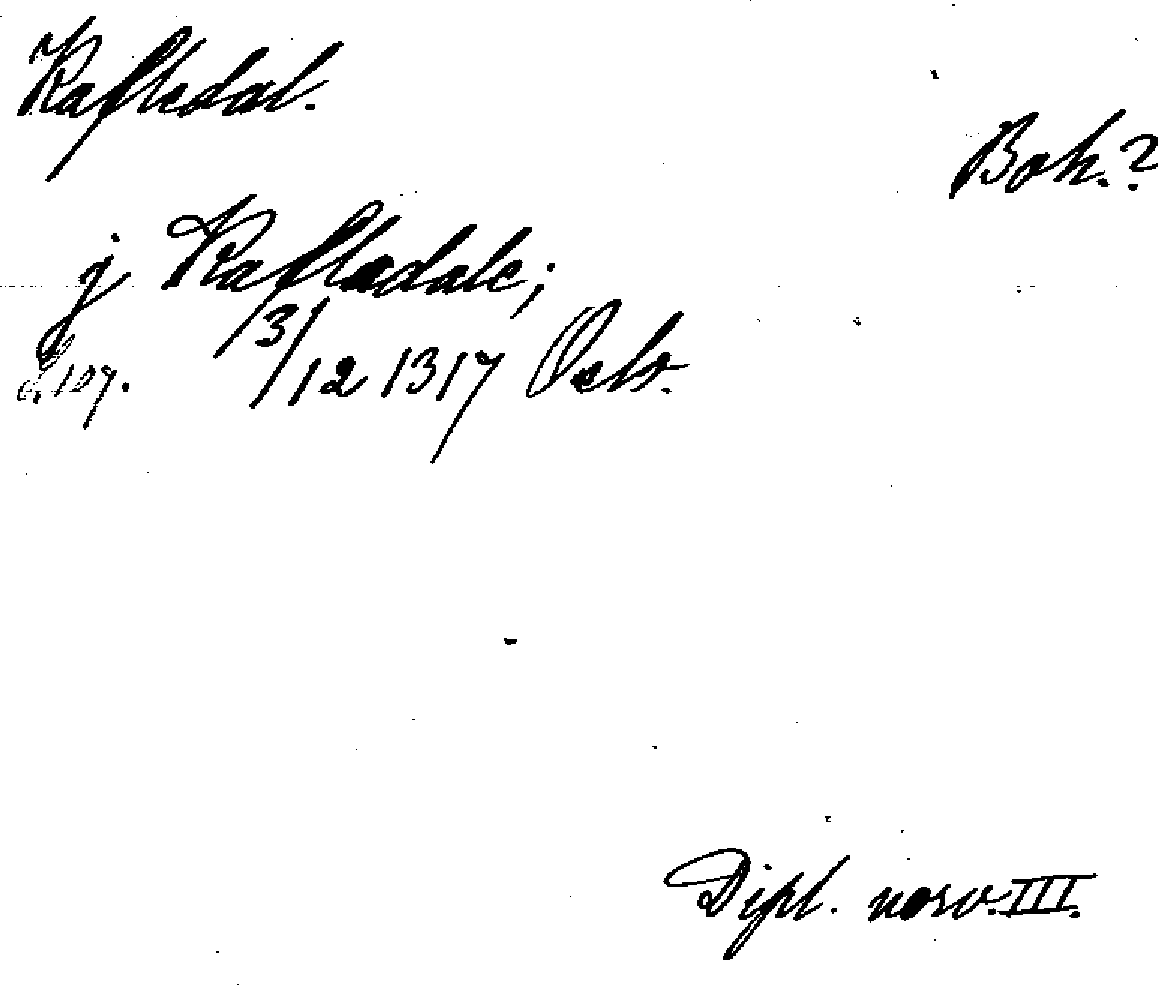 Kafledal.
Boh.?
j Kafladale;
S. 107. 3/12 1317 Oslo.
Dipl. norv. III.